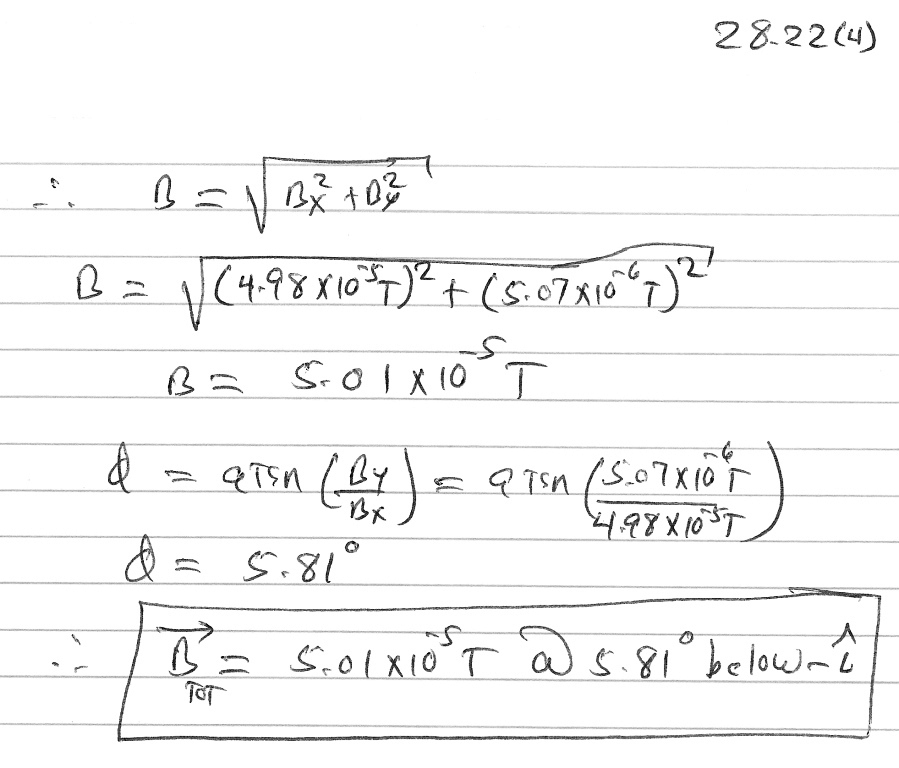 28.22(4)
∴ B = √(Bx² + By²)
B = √((4.98 × 10⁻⁵ T)² + (5.07 × 10⁻⁶ T)²)
B = 5.01 × 10⁻⁵ T
ϕ = atan (By/Bx) = atan (5.07 × 10⁻⁶ T / 4.98 × 10⁻⁵ T)
ϕ = 5.81°
∴ B⃗_TOT = 5.01 × 10⁻⁵ T @ 5.81° below - î